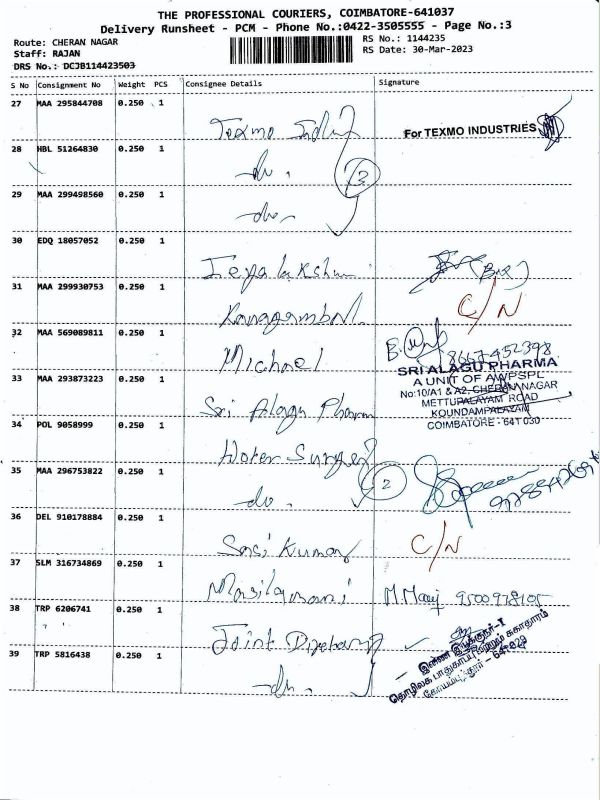 THE PROFESSIONAL COURIERS, COIMBATORE-641037
Delivery Runsheet - PCM - Phone No.:0422-3505555 - Page No.:3
Route: CHERAN NAGAR
RS No.: 1144235
Staff: RAJAN
RS Date: 30-Mar-2023
DRS No.: DCJB114423503
S No Consignment No Weight PCS Consignee Details Signature
27 MAA 295844708 0.250 1
Texmo Indu For TEXMO INDUSTRIES
28 HBL 51264830 0.250 1
do. 3
29 MAA 299498560 0.250 1
do.
30 EDQ 18057052 0.250 1
Jeyalakshmi
31 MAA 299930753 0.250 1
Kanagambal C/N
32 MAA 569089811 0.250 1
Michael 8667452398
33 MAA 293873223 0.250 1
Sri Alagu Pharma
SRI ALAGU PHARMA
A UNIT OF AWPSPL
No:10/A1 & A2, CHERAN NAGAR
METTUPALAYAM ROAD
KOUNDAMPALAYAM
COIMBATORE - 641 030
34 POL 9058999 0.250 1
Water
35 MAA 296753822 0.250 1
do. 2
36 DEL 910178884 0.250 1
Sasi Kumar C/N
37 SLM 316734869 0.250 1
Masilamani
38 TRP 6206741 0.250 1
Joint
39 TRP 5816438 0.250 1
do.
இணை இயக்குநர்-I
தொழிலக பாதுகாப்பு மற்றும் சுகாதாரம்